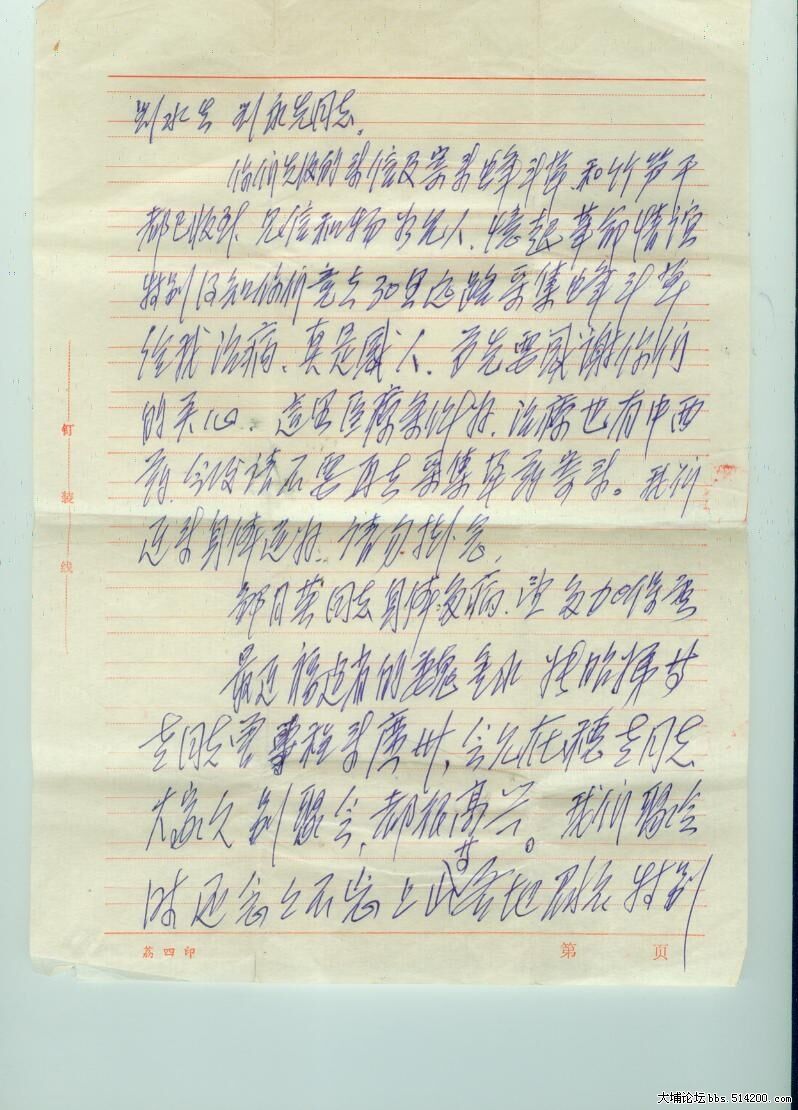 刘水生 刘永先同志。
你们先后的来信及寄来蜂斗草、和竹笋干
都已收到、见信和物如见人、忆起革命情谊
特别得知你们竟去30里远路采集蜂斗草
给我治病、真是感人、首先要感谢你们
的关心、这里医疗条件好、治疗也有中西
药、今后请不要再去采集草药寄来。我们
近来身体还好、请勿挂念。
邹月英同志身体多病、望多加保重
最近福建省的魏金水
老同志曾 程来广州、会见在穗老同志
大家久别聚会、都很高兴。我们聚会
时还念念不忘 山 等地群众 特别
钉
装
线
荔四印
第 页
大埔论坛bbs.514200.com